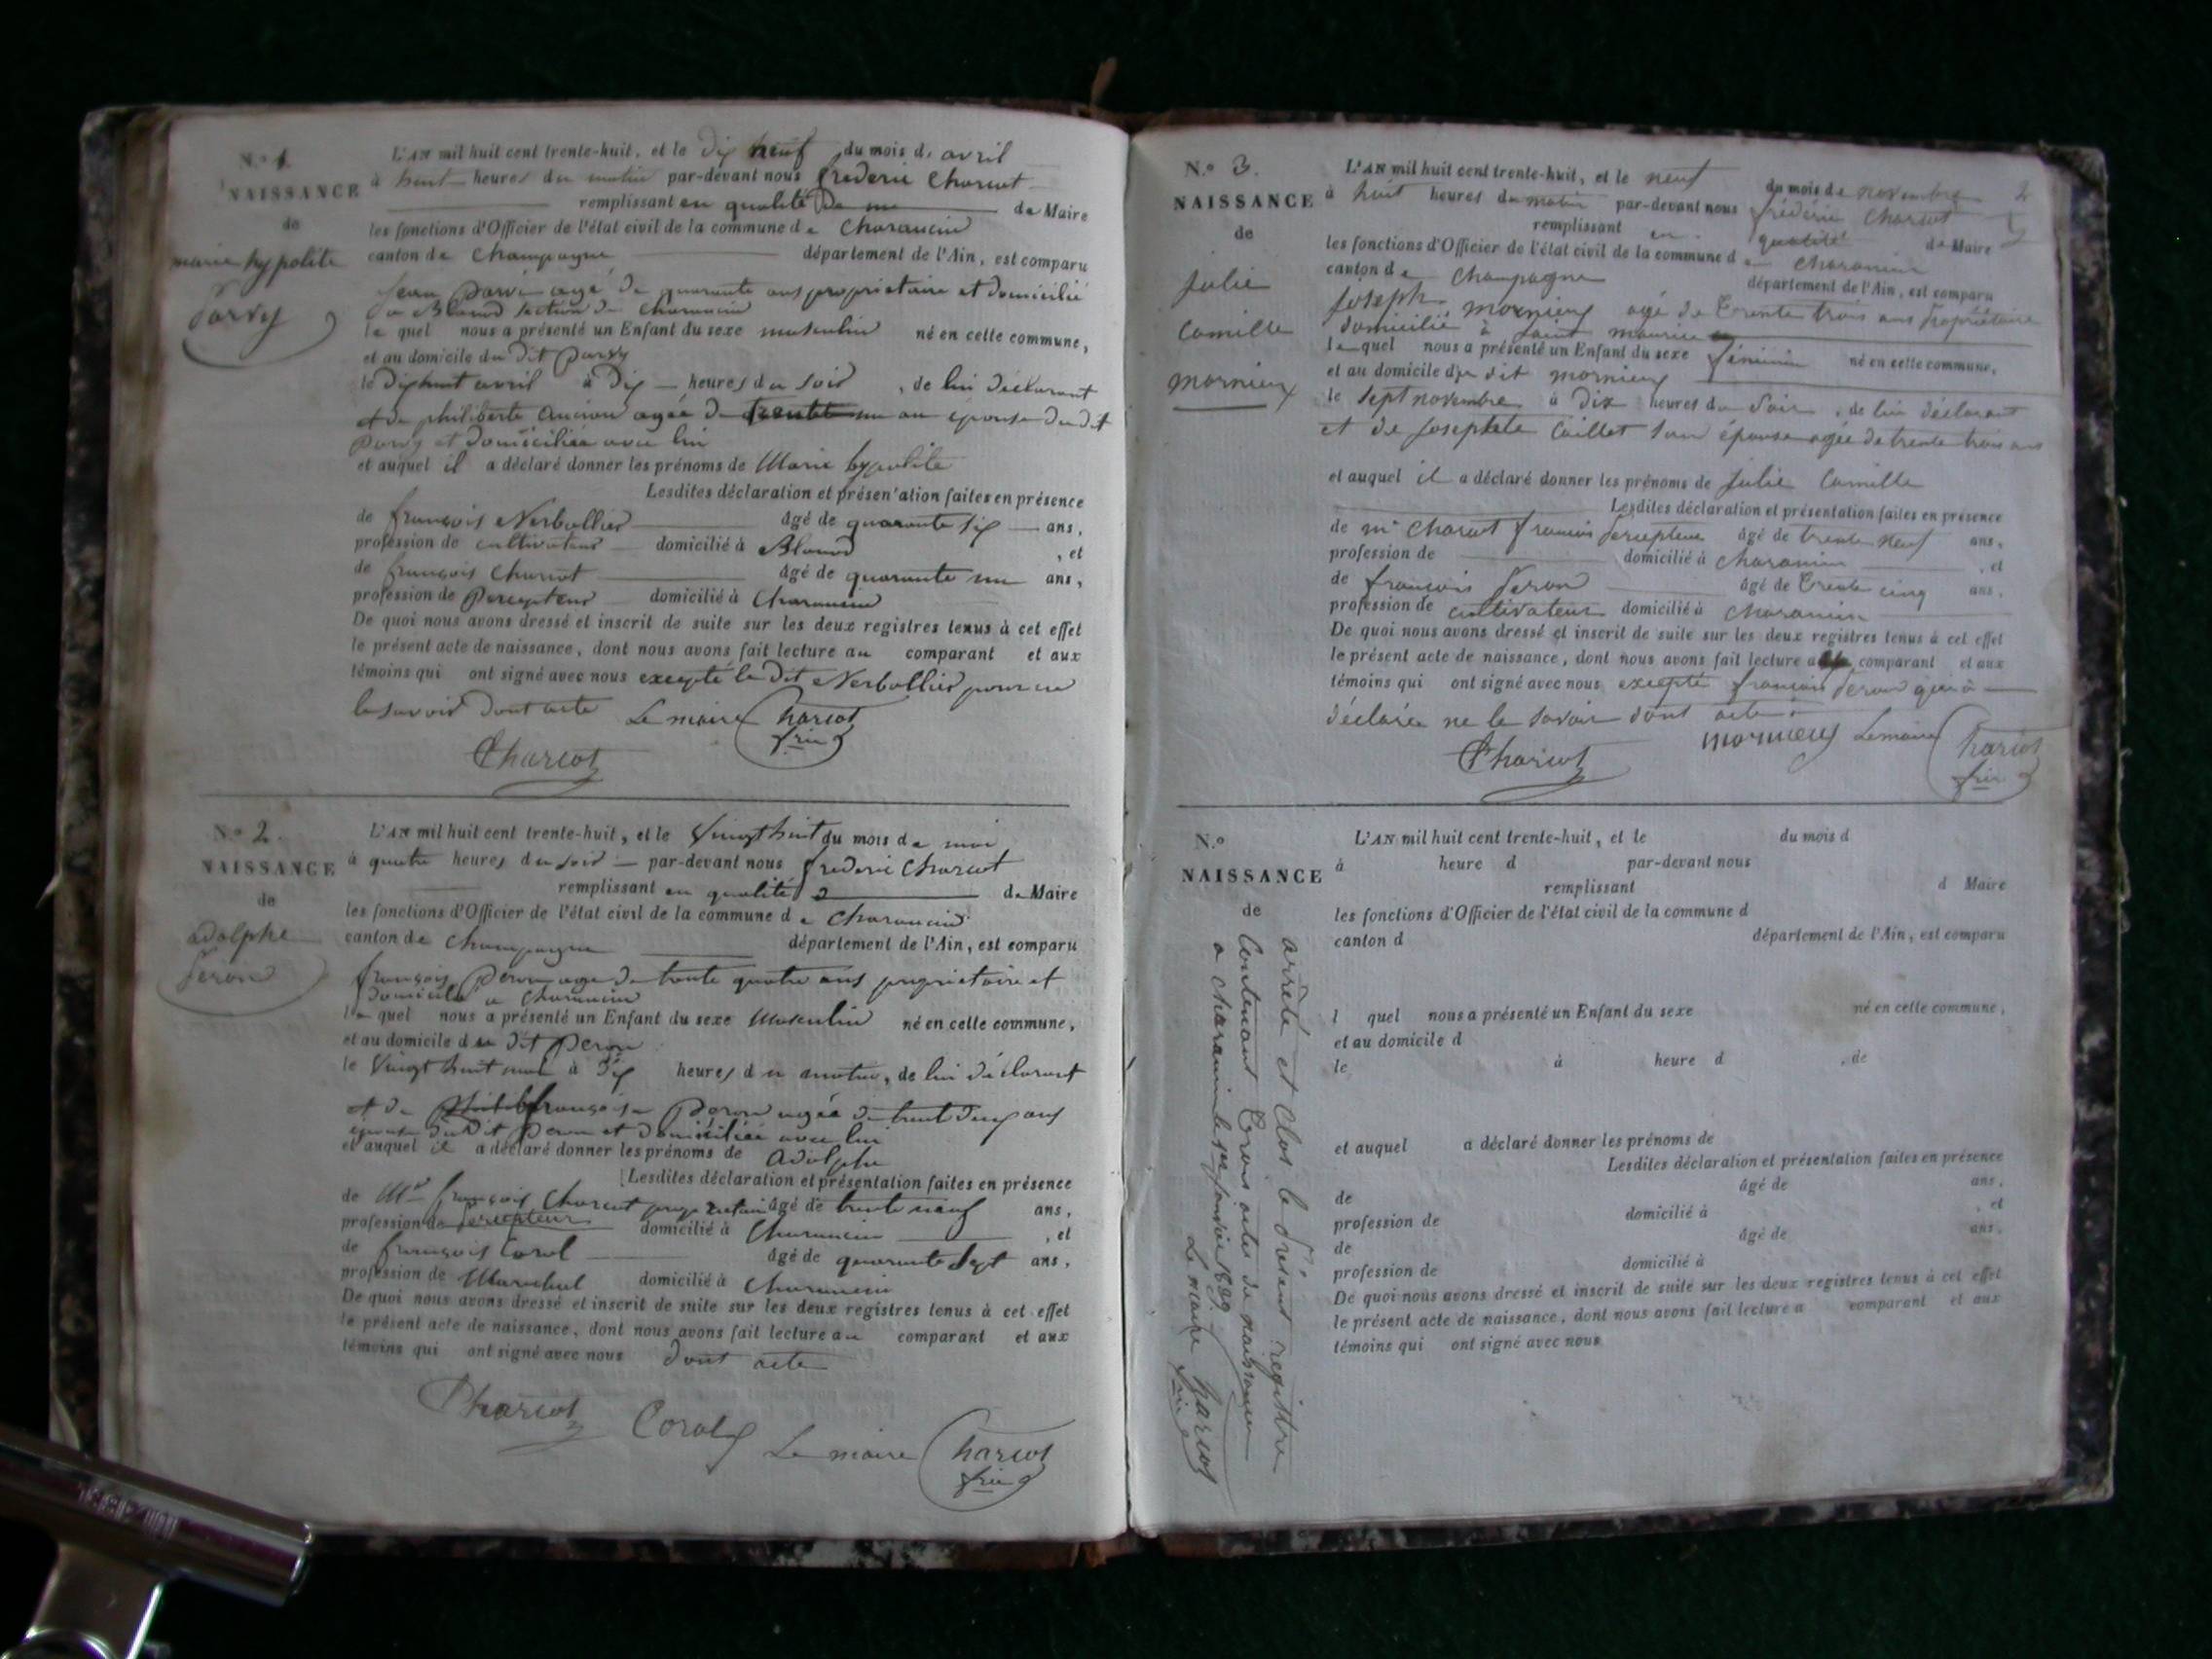 N.o 1.
NAISSANCE
de
marie hypolite
Parvy
L'AN mil huit cent trente-huit, et le dix neuf du mois d' avril
à huit heures du matin par-devant nous frederic Charcot
remplissant en qualité de Maire
les fonctions d'Officier de l'état civil de la commune de Charancin
canton de Champagne département de l'Ain, est comparu
Jean Parvi agé de quarante ans propriétaire et domicilié
a Blanod section de Charancin
lequel nous a présenté un Enfant du sexe masculin né en cette commune,
et au domicile du dit Parvy
le dixhuit avril à dix heures du soir, de lui déclarant
et de philiberte Ancian agée de un an épouse du dit
Parvy et domiciliée avec lui
et auquel il a déclaré donner les prénoms de Marie hypolite
Lesdites déclaration et présentation faites en présence
de françois Nerbollier âgé de quarante six ans,
profession de cultivateur domicilié à Blanod, et
de françois Charcot âgé de quarante un ans,
profession de Percepteur domicilié à Charancin
De quoi nous avons dressé et inscrit de suite sur les deux registres tenus à cet effet
le présent acte de naissance, dont nous avons fait lecture au comparant et aux
témoins qui ont signé avec nous excepté le dit Nerbollier pour ne
le savoir dont acte Le maire Charcot
fric
Charcot
N.o 2.
NAISSANCE
de
adolphe
Peron
L'AN mil huit cent trente-huit, et le Vingt huit du mois de mai
à quatre heures du soir par-devant nous frederic Charcot
remplissant en qualité de Maire
les fonctions d'Officier de l'état civil de la commune de Charancin
canton de Champagne département de l'Ain, est comparu
françois Peron age de trente quatre ans propriétaire et
domicilié a Charancin
lequel nous a présenté un Enfant du sexe Masculin né en cette commune,
et au domicile du dit Peron
le Vingt huit mai à dix heures du matin, de lui déclarant
et de françoise Peron agée de trent deux ans
epouse du dit Peron et domiciliée avec lui
et auquel il a déclaré donner les prénoms de Adolphe
Lesdites déclaration et présentation faites en présence
de Mr françois Charcot âgé de trente neuf ans,
profession de percepteur domicilié à Charancin, et
de françois Corol âgé de quarante sept ans,
profession de Marechal domicilié à Charancin
De quoi nous avons dressé et inscrit de suite sur les deux registres tenus à cet effet
le présent acte de naissance, dont nous avons fait lecture au comparant et aux
témoins qui ont signé avec nous dont acte
Charcot Corol Le maire Charcot
fric
2
N.o 3.
NAISSANCE
de
julie
camille
mornieux
L'AN mil huit cent trente-huit, et le neuf du mois de novembre
à huit heures du matin par-devant nous frédéric Charcot
remplissant en qualité de Maire
les fonctions d'Officier de l'état civil de la commune de Charancin
canton de Champagne département de l'Ain, est comparu
Joseph mornieux agé de trente trois ans propriétaire
domicilié à saint maurice
lequel nous a présenté un Enfant du sexe féminin né en cette commune,
et au domicile du dit mornieux
le sept novembre à dix heures du soir, de lui déclarant
et de Josephte Caillet son épouse agée de trente trois ans
et auquel il a déclaré donner les prénoms de julie Camille
Lesdites déclaration et présentation faites en présence
de mr Charcot françois percepteur âgé de trente neuf ans,
profession de domicilié à Charancin, et
de françois Peron âgé de trente cinq ans,
profession de cultivateur domicilié à Charancin
De quoi nous avons dressé et inscrit de suite sur les deux registres tenus à cet effet
le présent acte de naissance, dont nous avons fait lecture au comparant et aux
témoins qui ont signé avec nous excepté françois Peron qui a
déclarée ne le savoir dont acte.
mornieux Le maire Charcot
fric
Charcot
N.o
NAISSANCE
de
L'AN mil huit cent trente-huit, et le du mois d
à heure d par-devant nous
remplissant d Maire
les fonctions d'Officier de l'état civil de la commune d
canton d département de l'Ain, est comparu
l quel nous a présenté un Enfant du sexe né en cette commune,
et au domicile d
le à heure d, de
et auquel a déclaré donner les prénoms de
Lesdites déclaration et présentation faites en présence
de âgé de ans,
profession de domicilié à, et
de âgé de ans,
profession de domicilié à
De quoi nous avons dressé et inscrit de suite sur les deux registres tenus à cet effet
le présent acte de naissance, dont nous avons fait lecture a comparant et aux
témoins qui ont signé avec nous
arrêté et clos le present registre
contenant trois actes de naissance
a charancin le 1er janvier 1839.
Le maire Charcot
fric